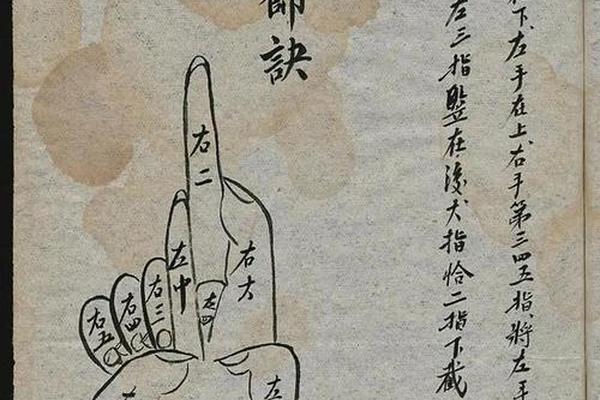 下、左手在上、右手第三四五指、將左手
左三指豎在後大指恰二指下截
師訣
右二
右大
左中
右三
右四
右五
左四
左